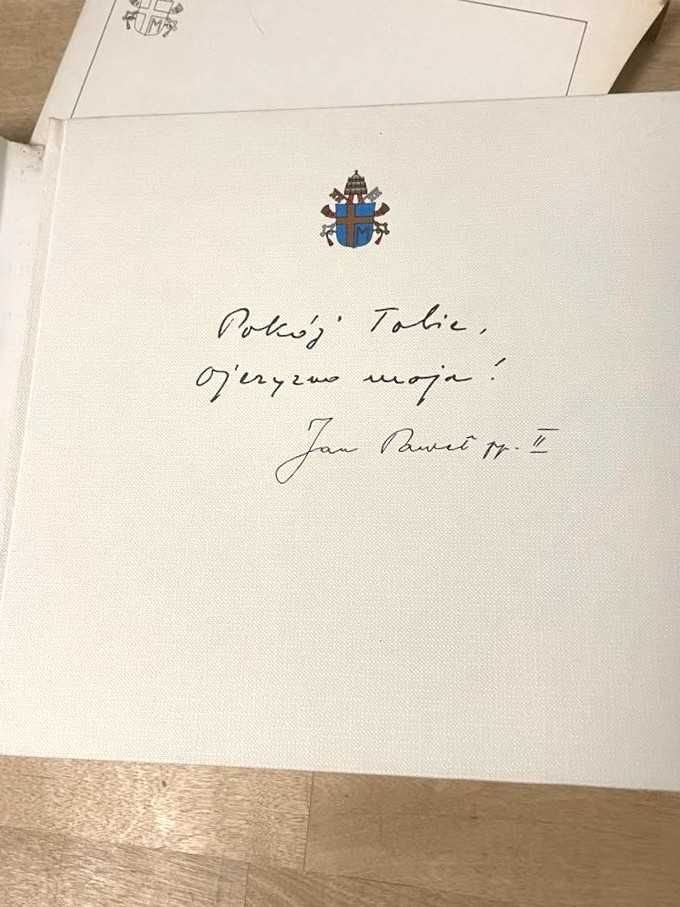 Pokój Tobie,
Ojczyzno moja!
Jan Paweł pp. II
M
M